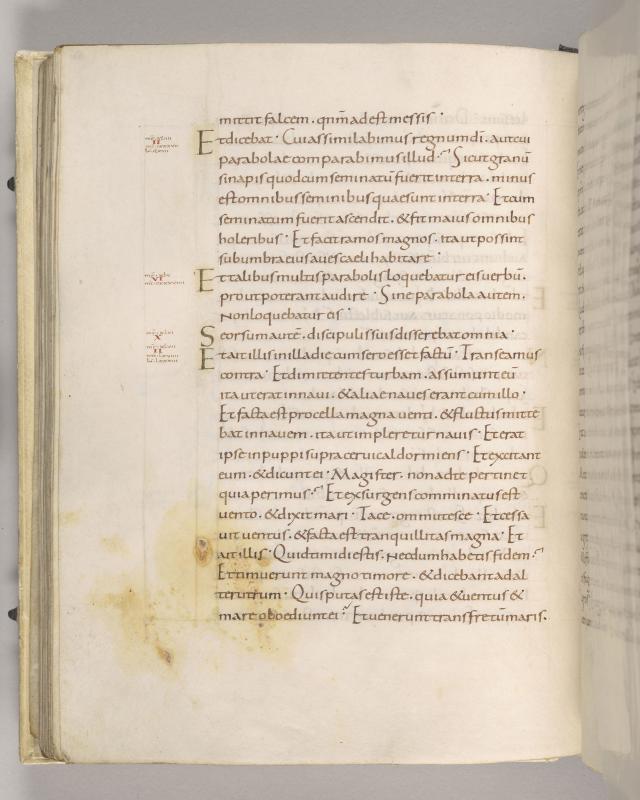 mittit falcem . qnm adest messis .
Et dicebat . Cui assimilabimus regnum dī . aut cui
parabolae comparabimus illud . Sicut granū
sinapis quod cum seminatū fuerit in terra . minus
est omnibus seminibus quae sunt in terra . Et cum
seminatum fuerit ascendit . & fit maius omnibus
holeribus . Et facit ramos magnos . ita ut possint
sub umbra eius aves caeli habitare .
Et talibus multis parabolis loquebatur eis verbū .
prout poterant audire . Sine parabola autem .
Non loquebatur eis .
Seorsum autē . discipulis suis disserebat omnia .
Et ait illis in illa die cum sero esset factū . Transeamus
contra . Et dimittentes turbam . assumunt eū
ita ut erat in navi . & aliae naves erant cum illo .
Et facta est procella magna venti . & fluctus mitte
bat in navem . ita ut impleretur navis . Et erat
ipse in puppi supra cervical dormiens . Et excitant
eum . & dicunt ei . Magister . non ad te pertinet
quia perimus . Et exsurgens comminatus est
vento . & dixit mari . Tace . ommutesce . Et cessa
vit ventus . & facta est tranquillitas magna . Et
ait illis . Quid timidi estis . Necdum habetis fidem .
Et timuerunt magno timore . & dicebant ad al
terutrum . Quis putas est iste . quia & ventus &
mare oboediunt ei . Et venerunt trans fretū maris .